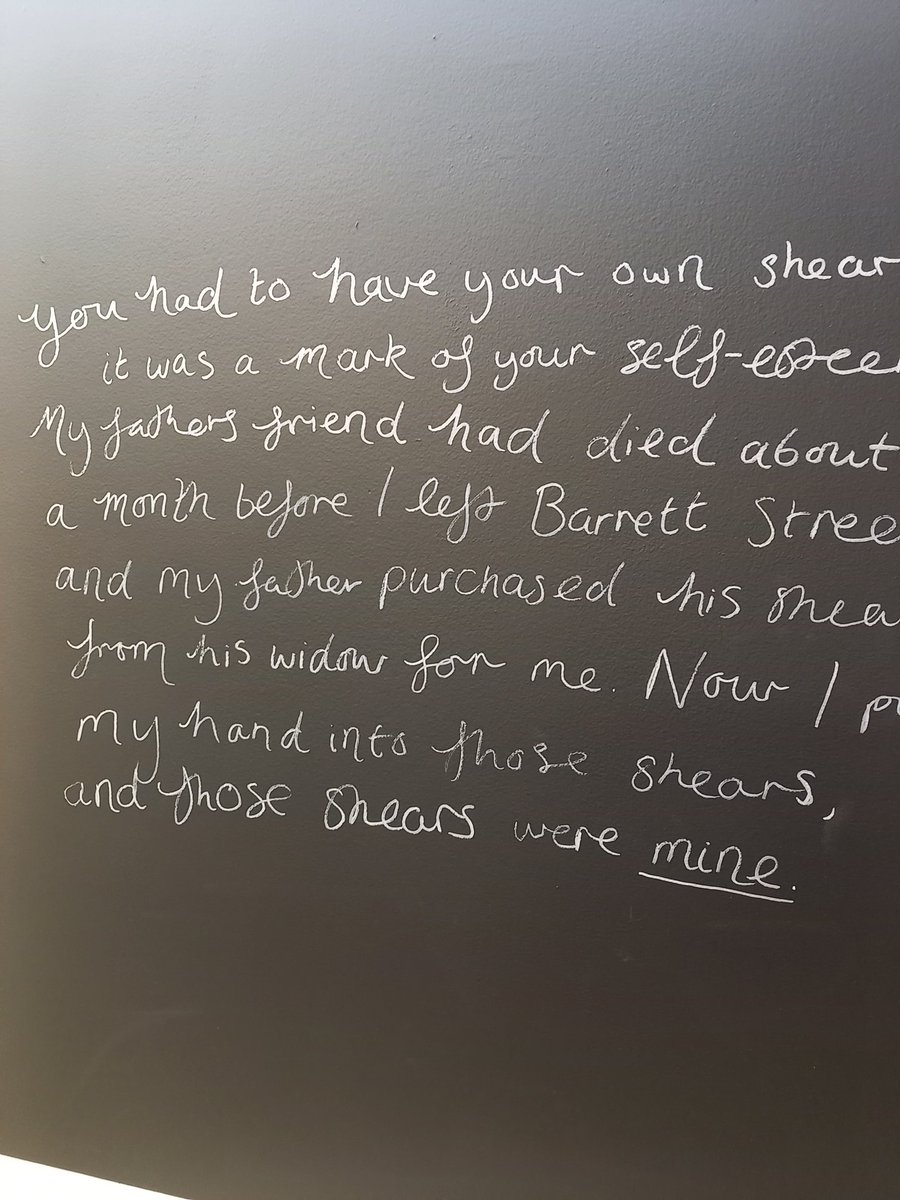 you had to have your own shear
it was a mark of your self-esteem
My fathers friend had died about
a month before I left Barrett Stree
and my father purchased his shea
from his widow for me. Now I pu
my hand into those shears,
and those shears were mine.